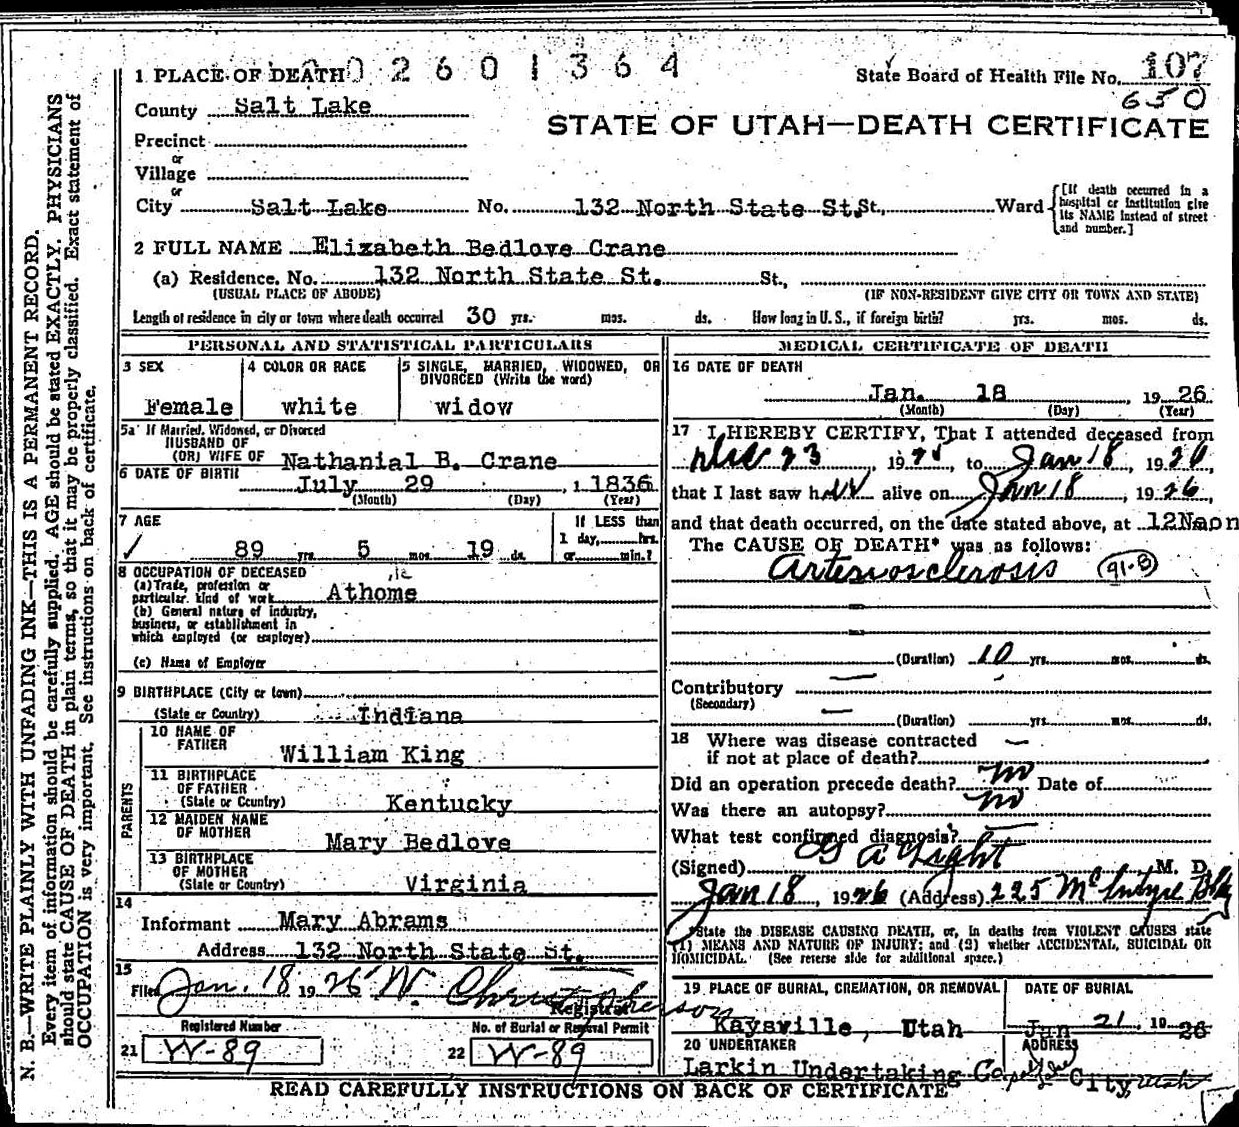 N. B.—WRITE PLAINLY WITH UNFADING INK—THIS IS A PERMANENT RECORD.
Every item of information should be carefully supplied. AGE should be stated EXACTLY. PHYSICIANS
should state CAUSE OF DEATH in plain terms, so that it may be properly classified. Exact statement of
OCCUPATION is very important. See instructions on back of certificate.
1 PLACE OF DEATH 002601364 State Board of Health File No. 107
650
County Salt Lake
STATE OF UTAH—DEATH CERTIFICATE
Precinct
or
Village
or
City Salt Lake No. 132 North State St. St., Ward
[If death occurred in a
hospital or institution give
its NAME instead of street
and number.]
2 FULL NAME Elizabeth Bedlove Crane
(a) Residence. No. 132 North State St. St.,
(USUAL PLACE OF ABODE) (IF NON-RESIDENT GIVE CITY OR TOWN AND STATE)
Length of residence in city or town where death occurred 30 yrs. mos. ds. How long in U. S., if foreign birth? yrs. mos. ds.
PERSONAL AND STATISTICAL PARTICULARS
3 SEX 4 COLOR OR RACE 5 SINGLE, MARRIED, WIDOWED, OR
DIVORCED (Write the word)
Female white widow
5a If Married, Widowed, or Divorced
HUSBAND OF
(OR) WIFE OF Nathanial B. Crane
6 DATE OF BIRTH July 29 , 1 1836
(Month) (Day) (Year)
7 AGE If LESS than
1 day, hrs.
89 yrs. 5 mos. 19 ds. or min.?
8 OCCUPATION OF DECEASED
(a) Trade, profession or
particular kind of work Athome
(b) General nature of industry,
business, or establishment in
which employed (or employer)
(c) Name of Employer
9 BIRTHPLACE (City or town)
(State or Country) Indiana
PARENTS
10 NAME OF
FATHER William King
11 BIRTHPLACE
OF FATHER
(State or Country) Kentucky
12 MAIDEN NAME
OF MOTHER Mary Bedlove
13 BIRTHPLACE
OF MOTHER
(State or Country) Virginia
14
Informant Mary Abrams
Address 132 North State St.
15
Filed Jan. 18 1926 W. Christopherson
Registrar
Registered Number No. of Burial or Removal Permit
21 W-89 22 W-89
MEDICAL CERTIFICATE OF DEATH
16 DATE OF DEATH
Jan. 18 , 19 26
(Month) (Day) (Year)
17 I HEREBY CERTIFY, That I attended deceased from
Dec 23, 1925, to Jan 18, 1926
that I last saw her alive on Jan 18, 1926,
and that death occurred, on the date stated above, at 12Noon
The CAUSE OF DEATH* was as follows:
Arteriosclerosis (91-B)
(Duration) 10 yrs. mos. ds.
Contributory —
(Secondary)
— (Duration) yrs. mos. ds.
18 Where was disease contracted —
if not at place of death?
Did an operation precede death? no Date of
Was there an autopsy? no
What test confirmed diagnosis? —
(Signed) M. D.
Jan 18, 1926 (Address) 225 McIntyre Bldg
*State the DISEASE CAUSING DEATH, or, in deaths from VIOLENT CAUSES state
(1) MEANS AND NATURE OF INJURY; and (2) whether ACCIDENTAL, SUICIDAL OR
HOMICIDAL. (See reverse side for additional space.)
19 PLACE OF BURIAL, CREMATION, OR REMOVAL DATE OF BURIAL
Kaysville, Utah Jan 21, 19 26
20 UNDERTAKER ADDRESS
Larkin Undertaking Co City, Utah
READ CAREFULLY INSTRUCTIONS ON BACK OF CERTIFICATE